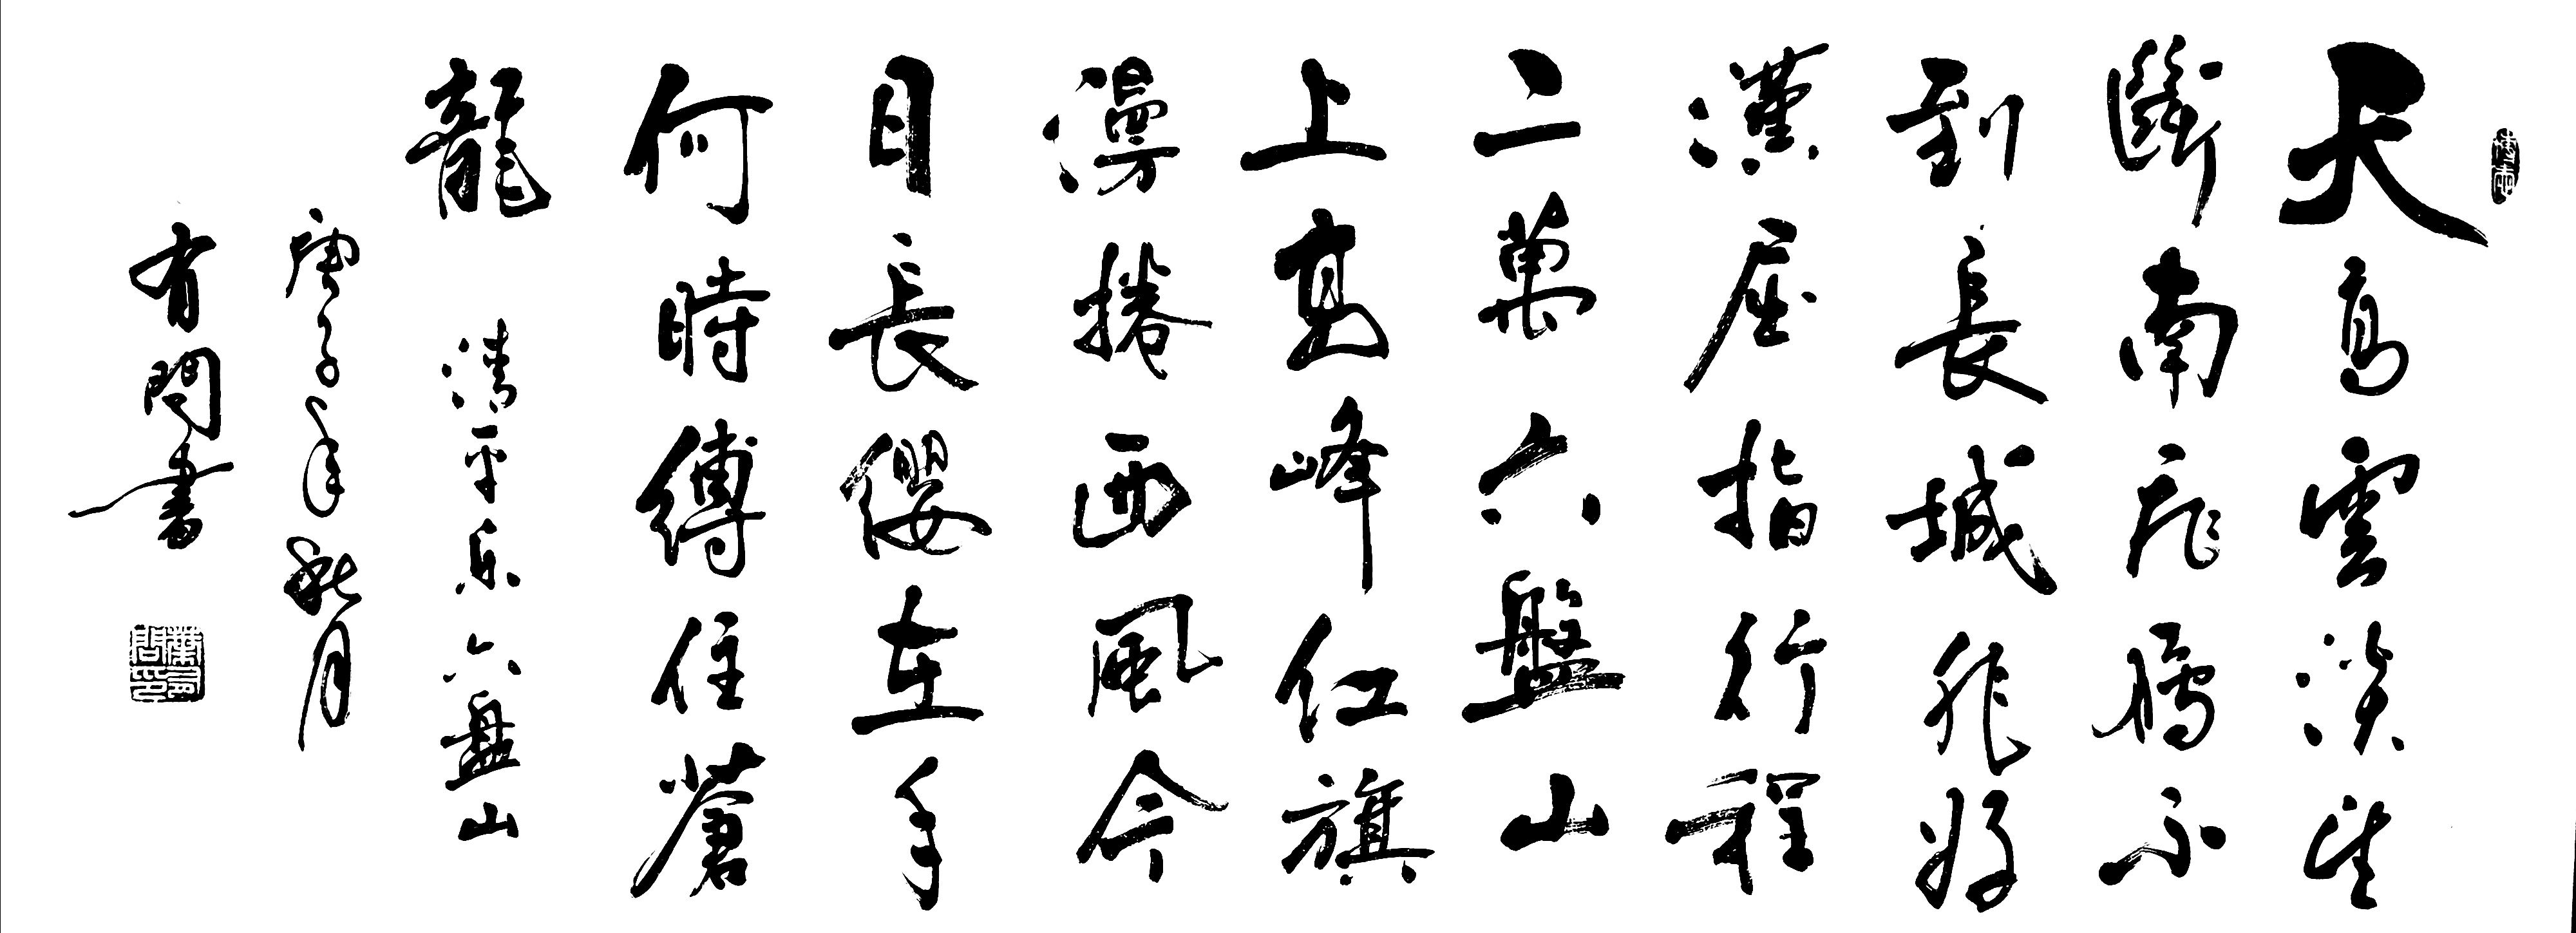 天高雲淡望
斷南飛鴈不
到長城非好
漢屈指行程
二萬六盤山
上高峰紅旗
漫捲西風今
日長纓在手
何時縛住蒼
龍
清平乐六盤山
庚子年秋月
有問書
葉有問印